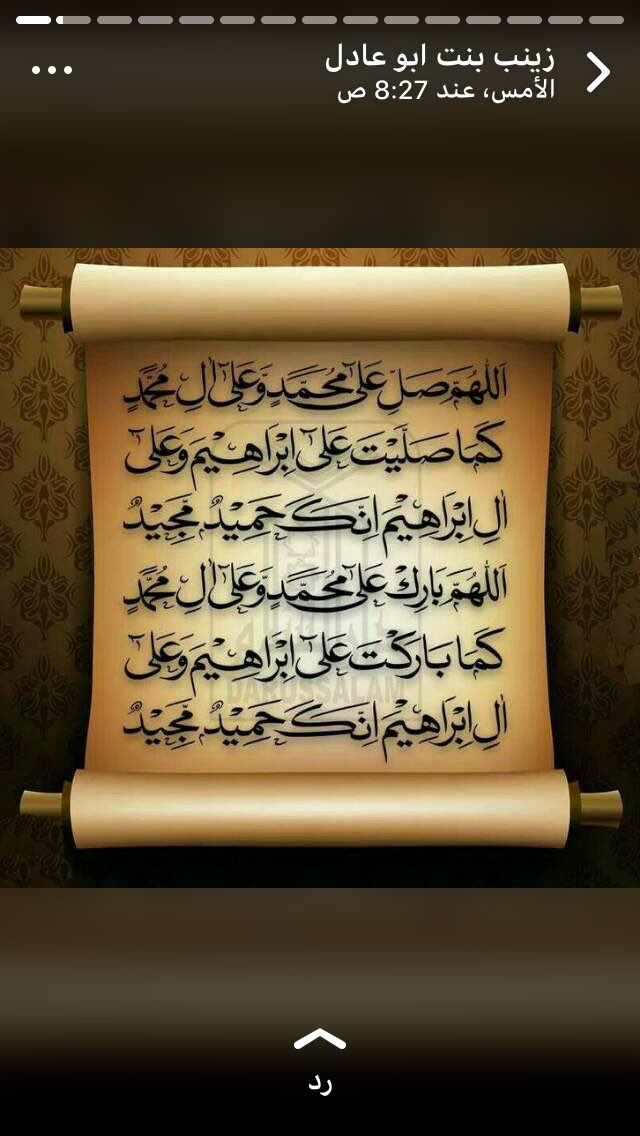 زينب بنت ابو عادل
الأمس، عند 8:27 ص
اَللّٰهُمَّ صَلِّ عَلٰى مُحَمَّدٍ وَّعَلٰٓى اٰلِ مُحَمَّدٍ
كَمَا صَلَّيْتَ عَلٰٓى اِبْرَاهِيْمَ وَعَلٰٓى
اٰلِ اِبْرَاهِيْمَ اِنَّكَ حَمِيْدٌ مَّجِيْدٌ
اَللّٰهُمَّ بَارِكْ عَلٰى مُحَمَّدٍ وَّعَلٰٓى اٰلِ مُحَمَّدٍ
كَمَا بَارَكْتَ عَلٰٓى اِبْرَاهِيْمَ وَعَلٰٓى
DARUSSALAM
اٰلِ اِبْرَاهِيْمَ اِنَّكَ حَمِيْدٌ مَّجِيْدٌ
رد